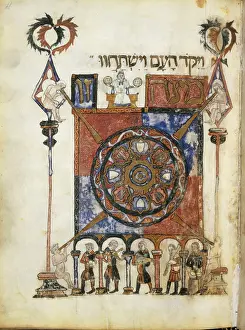 ויקד העם וישתחוו